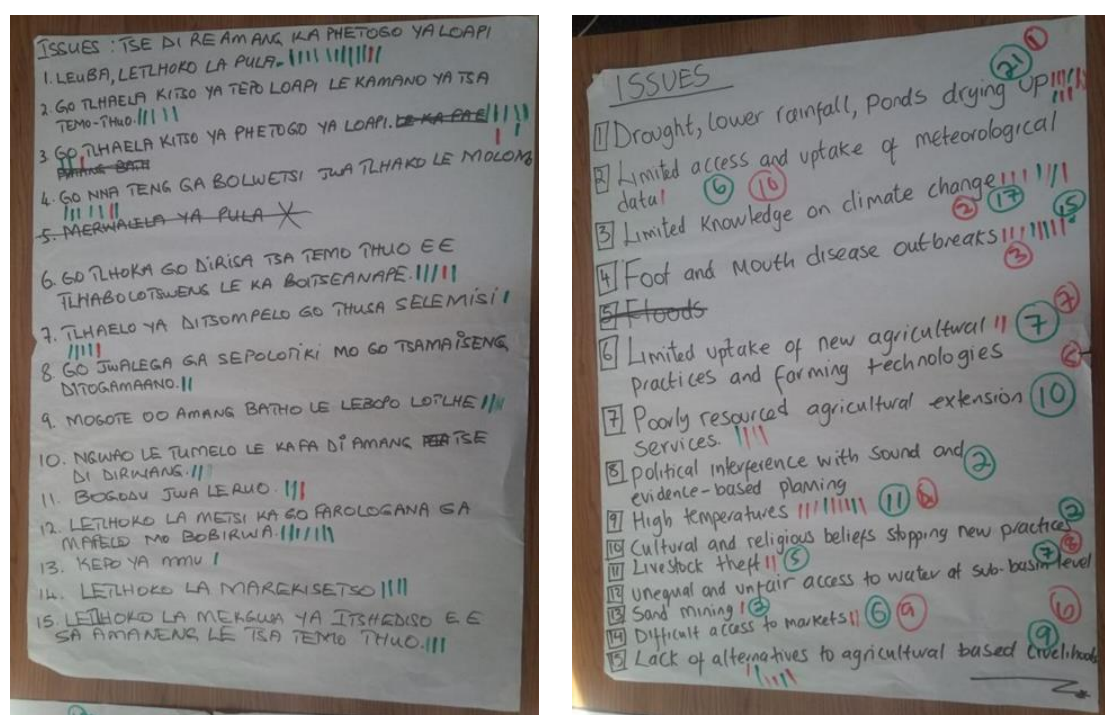 ISSUES : TSE DI RE AMANG KA PHETOGO YA LOAPI
1. LEUBA, LETLHOKO LA PULA.
2. GO TLHAELA KITSO YA TEPO LOAPI LE KAMANO YA TSA
TEMO-THUO.
3. GO TLHAELA KITSO YA PHETOGO YA LOAPI.
4. GO NNA TENG GA BOLWETSI JWA TLHAKO LE MOLOMO
5. MERWALELA YA PULA X
6. GO TLHOKA GO DIRISA TSA TEMO THUO E E
TLHABOLOTSWENG LE KA BOITSEANAPE.
7. TLHAELO YA DITSOMPELO GO THUSA SELEMISI
8. GO JWALEGA GA SEPOLOTIKI MO GO TSAMAISENG
DITOGAMAANO.
9. MOGOTE OO AMANG BATHO LE LEBOPO LOTLHE
10. NGWAO LE TUMELO LE KAFA DI AMANG TSE
DI DIRWANG.
11. BOGODU JWA LERUO.
12. LETLHOKO LA METSI KA GO FAROLOGANA GA
MAFELO MO BOBIRWA.
13. KEPO YA MMU
14. LETLHOKO LA MAREKISETSO
15. LETLHOKO LA MEKGWA YA ITSHEDISO E E
SA AMANENG LE TSA TEMO THUO.
ISSUES 21 1
1 Drought, lower rainfall, Ponds drying up
2 Limited access and uptake of meteorological
data 6 10
3 Limited Knowledge on climate change
2 17 15
4 Foot and Mouth disease outbreaks
3
5 Floods
7
6 Limited uptake of new agricultural 7
practices and farming technologies
7 Poorly resourced agricultural extension 10
services.
8 Political interference with sound and 2
evidence-based planning
9 High temperatures 11
10 Cultural and religious beliefs stopping new practices 2
11 Livestock theft 5 7 8
12 Unequal and unfair access to water at sub-basin level
13 Sand mining 2
14 Difficult access to markets 6 9
9
15 Lack of alternatives to agricultural based livelihoods